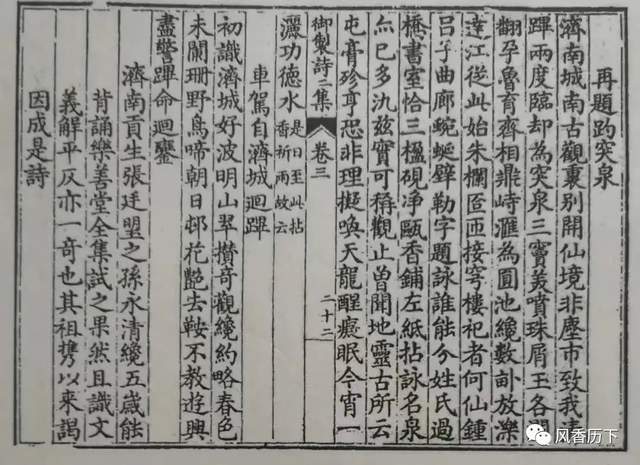 再題趵突泉
濟南城南古觀裏別開仙境非塵市致我清
蹕兩度臨却為突泉三竇美噴珠屑玉各瀾
翻孕魯育齊相鼎峙滙為圓池纔數畝放濼
達江從此始朱欄匝匝接穹樓祀者何仙鍾
呂子曲廊蜿蜒壁勒字題詠誰能分姓氏過
橋書室恰三楹硯淨甌香鋪左紙拈詠名泉
亦已多氿茲實可稱觀止曾聞地靈古所云
屯膏殄享恐非理擬喚天龍醒癡眠今宵一
御製詩二集 卷三 二十二
灑功德水是日至此拈香祈雨故云
車駕自濟城迴蹕
初識濟城好波明山翠攢奇觀纔約略春色
未闌珊野鳥啼朝日邨花艷去鞍不教遊興
盡警蹕命迴鑾
濟南貢生張廷望之孫永清纔五歲能
背誦樂善堂全集試之果然且識文
義解平仄亦一奇也其祖攜以來謁
因成是詩
风香历下